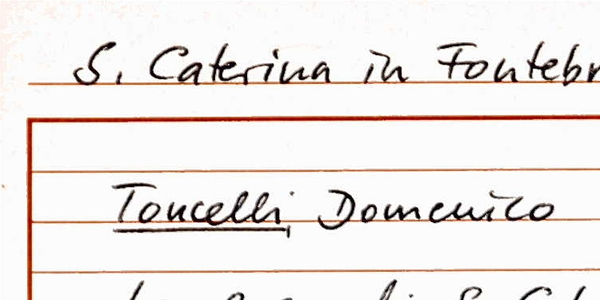 S. Caterina in Fontebr
Toncelli, Domenico